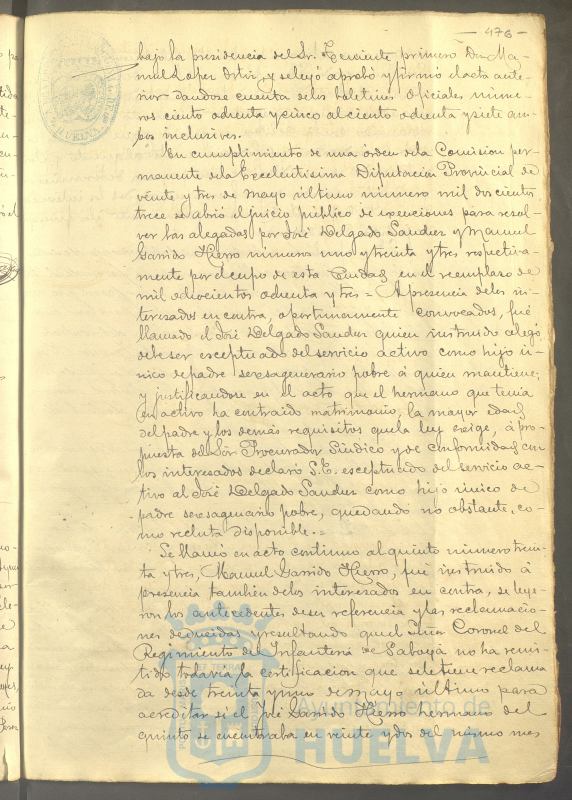 476
bajo la presidencia del Sr. Teniente primero Don Ma-
nuel Lopez Ortiz, y se leyó aprobó y firmó el acta ante-
rior dandose cuenta de los boletines oficiales núme-
ros ciento ochenta y cinco al ciento ochenta y siete am-
bos inclusives.
En cumplimiento de una órden de la Comision per-
manente de la Excelentisima Diputacion Provincial de
veinte y tres de mayo último número mil doscientos
trece se abrió el juicio público de exenciones para resol-
ver las alegadas por José Delgado Sanchez y Manuel
Garrido Hierro números uno y treinta y tres respectiva-
mente por el cupo de esta Ciudad en el reemplazo de
mil ochocientos ochenta y tres = A presencia de los in-
teresados en contra, oportunamente convocados, fué
llamado el José Delgado Sanchez quien instruido alegó
debe ser exceptuado del servicio activo como hijo ú-
nico de padre sexsagenario pobre á quien mantiene;
y justificandose en el acto que el hermano que tenia
en activo ha contraido matrimonio, la mayor edad
del padre y los demás requisitos que la ley exige, á pro-
puesta del Sor Procurador Síndico y de conformidad con
los interesados declaró S.E. esceptuado del servicio ac-
tivo al José Delgado Sanchez como hijo único de
padre sexsagenario pobre, quedando no obstante, co-
mo recluta disponible. =
Se llamó en acto continuo al quinto número trein-
ta y tres, Manuel Garrido Hierro, fué instruido á
presencia tambien de los interesados en contra, se leye-
ron los antecedentes de su referencia y las reclamacio-
nes deducidas y resultando que el Coronel del
Regimiento de Infanteria de Saboya no ha remi-
tido todavia la certificacion que se le tiene reclama
da desde treinta y uno de mayo último para
acreditar si el José Garrido Hierro hermano del
quinto se encontraba en veinte y dos del mismo mes
Ayuntamiento de
HUELVA